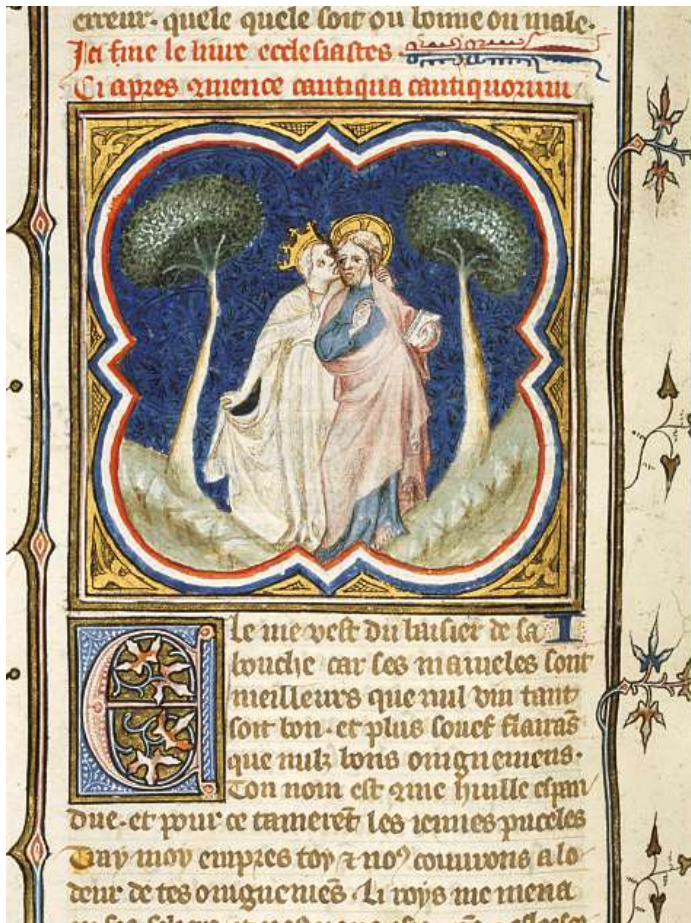 erreur. quele quele soit ou bonne ou male.
Ici fine le liure ecclesiastes
Ci apres qmence cantiqua cantiquorum
E le me vest du baisier de sa
bouche car ses mameles sont
meilleurs que nul vin tant
soit bon. et plus souef flairās
que nulz bons oingnemens.
Ton nom est qme huille espan
due. et pour ce tameret les iennes puceles
Tray moy empres toy ⁊ no⁹ courrons a lo
deur de tes oingnemēs. Li roys me mena